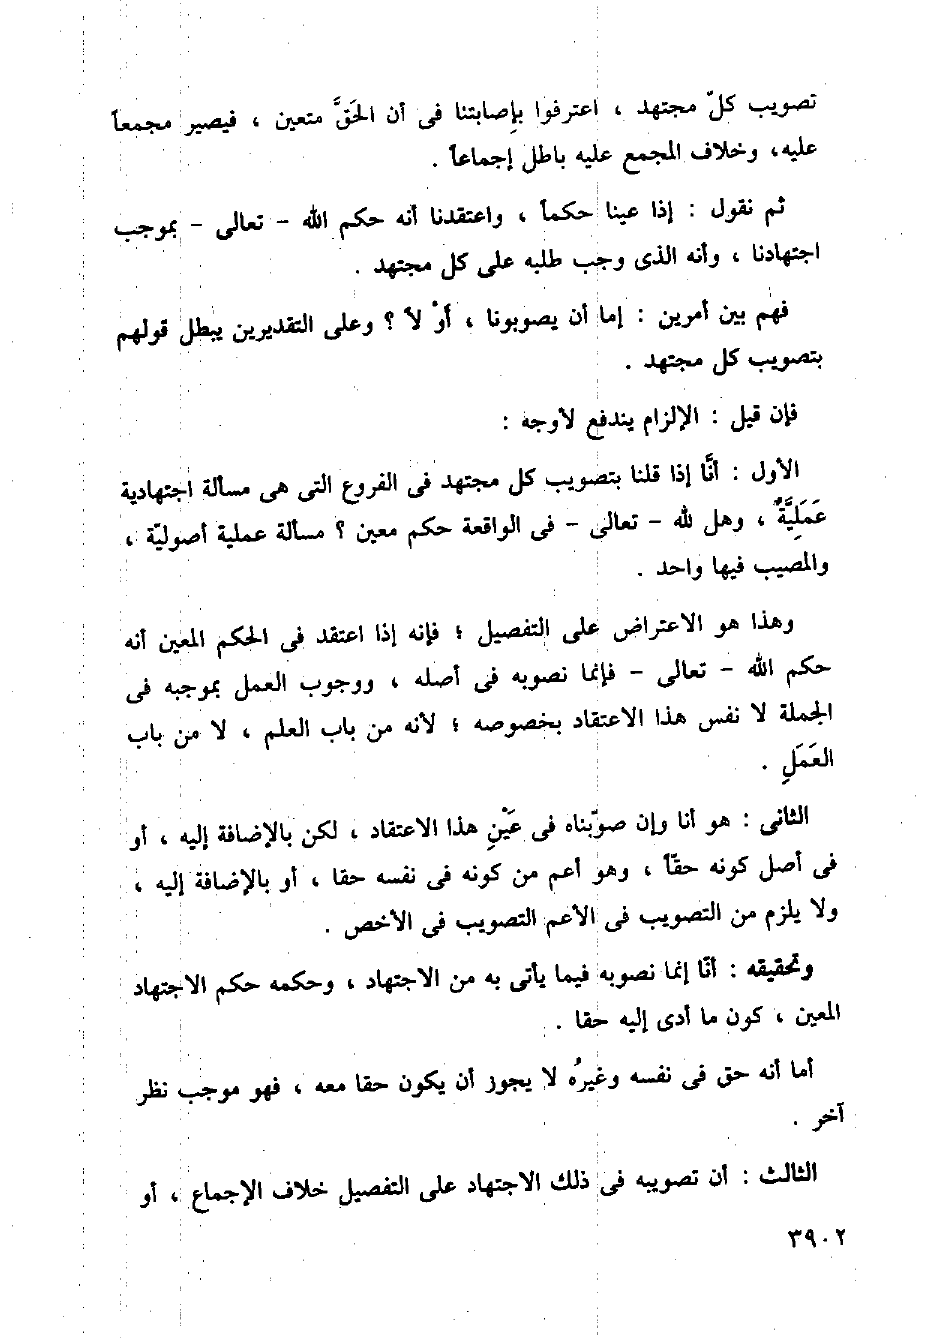 تصويب كلّ مجتهد ، اعترفوا بإِصابتنا فى أن الحَقَّ متعين ، فيصير مجمعاً
عليه، وخلاف المجمع عليه باطل إجماعاً .
ثم نقول : إذا عينا حكماً ، واعتقدنا أنه حكم الله – تعالى – بموجب
اجتهادنا ، وأنه الذى وجب طلبه على كل مجتهد .
فهم بين أمرين : إما أن يصوبونا ، أوْ لاَ ؟ وعلى التقديرين يبطل قولهم
بتصويب كل مجتهد .
فإن قيل : الإلزام يندفع لأوجه :
الأول : أنَّا إذا قلنا بتصويب كل مجتهد فى الفروع التى هى مسألة اجتهادية
عَمَلِيَّةٌ ، وهل لله – تعالى – فى الواقعة حكم معين ؟ مسألة عملية أصوليّة ،
والمصيب فيها واحد .
وهذا هو الاعتراض على التفصيل ؛ فإنه إذا اعتقد فى الحكم المعين أنه
حكم الله – تعالى – فإنما نصوبه فى أصله ، ووجوب العمل بموجبه فى
الجملة لا نفس هذا الاعتقاد بخصوصه ؛ لأنه من باب العلم ، لا من باب
العَمَلِ .
الثانى : هو أنا وإن صوّبناه فى عَيْنِ هذا الاعتقاد ، لكن بالإضافة إليه ، أو
فى أصل كونه حقّاً ، وهو أعم من كونه فى نفسه حقا ، أو بالإضافة إليه ،
ولا يلزم من التصويب فى الأعم التصويب فى الأخص .
وتحقيقه : أنّا إنما نصوبه فيما يأتى به من الاجتهاد ، وحكمه حكم الاجتهاد
المعين ، كون ما أدى إليه حقا .
أما أنه حق فى نفسه وغيرُه لا يجوز أن يكون حقا معه ، فهو موجب نظر
آخر .
الثالث : أن تصويبه فى ذلك الاجتهاد على التفصيل خلاف الإجماع ، أو
٣٩٠٢